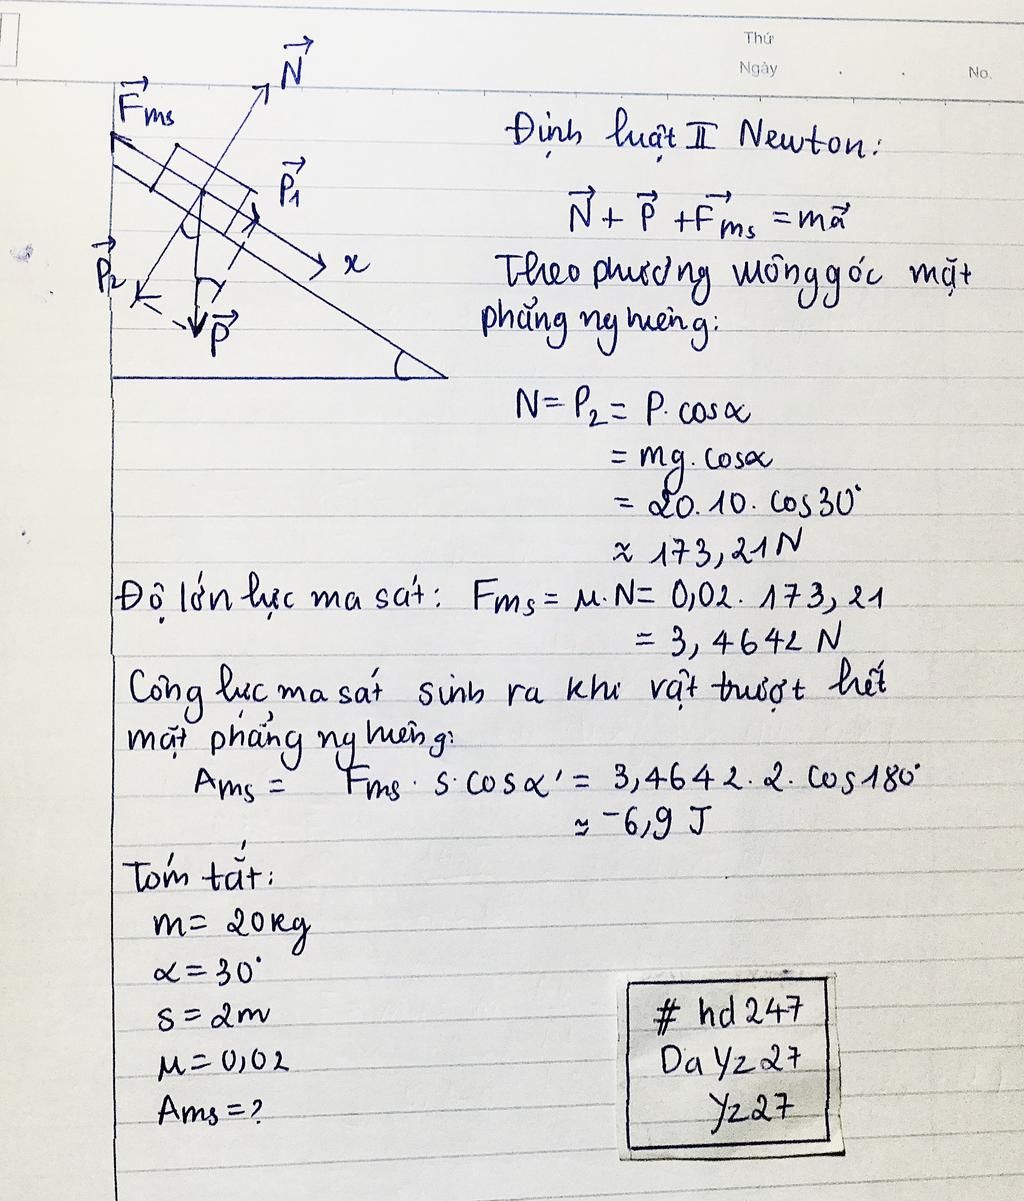 Thứ
Ngày . . No.
N
Fms
P1
P2
x
P
Định luật II Newton:
N + P + Fms = ma
Theo phương vuông góc mặt
phẳng nghiêng:
N = P2 = P. cosα
= mg. cosα
= 20. 10. cos30°
≈ 173,21 N
Độ lớn lực ma sát: Fms = μ. N = 0,02. 173,21
= 3,4642 N
Công lực ma sát sinh ra khi vật trượt hết
mặt phẳng nghiêng:
Ams = Fms. s. cosα' = 3,4642. 2. cos180°
≈ -6,9 J
Tóm tắt:
m = 20kg
α = 30°
s = 2m
μ = 0,02
Ams = ?
# hd247
DaYz27
Yz27